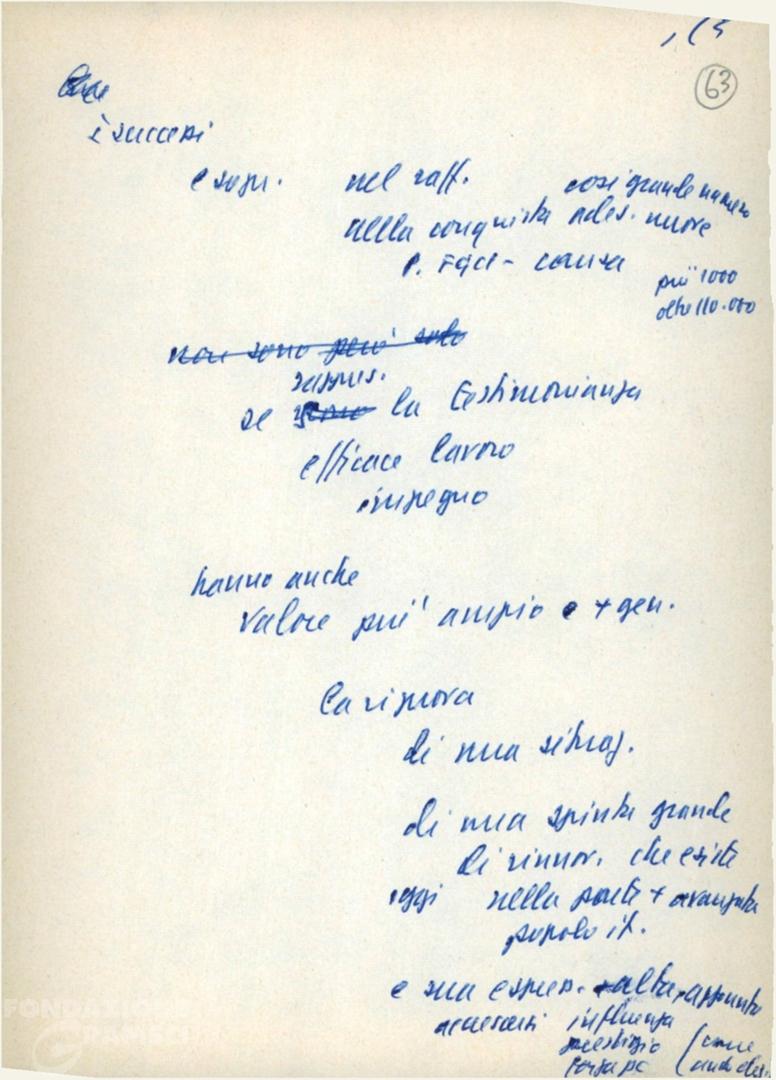 63
i successi
e sopr. nel raff. così grande numero
nella conquista ades. nuove
P. FGCI - causa
più 1000
oltre 110.000
non sono però solo
se la testimonianza
efficace lavoro
impegno
hanno anche
valore più ampio e + gen.
la riprova
di una situaz.
di una spinta grande
di rinnov. che esiste
oggi nella parte + avanzata
popolo it.
e sua espress. + alta, appunto
accresciuti influenza
prestigio (come
forza PC anche
FONDAZIONE
GRAMSCI